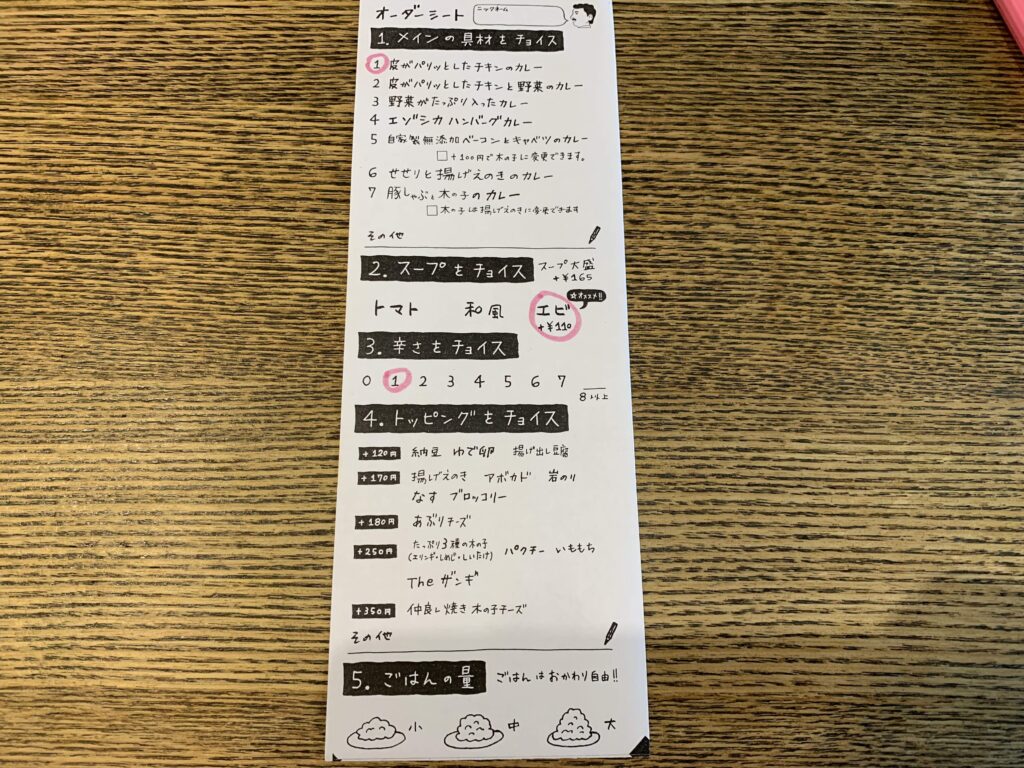 オーダーシート
ニックネーム
1. メインの具材をチョイス
1 皮がパリッとしたチキンのカレー
2 皮がパリッとしたチキンと野菜のカレー
3 野菜がたっぷり入ったカレー
4 エゾシカ ハンバーグカレー
5 自家製無添加ベーコンとキャベツのカレー
+100円で木の子に変更できます。
6 せせりと揚げえのきのカレー
7 豚しゃぶと木の子のカレー
木の子は揚げえのきに変更できます
その他
2. スープをチョイス スープ大盛
+¥165
トマト 和風 エビ ☆オススメ!!
+¥110
3. 辛さをチョイス
0 1 2 3 4 5 6 7
8以上
4. トッピングをチョイス
+120円 納豆 ゆで卵 揚げ出し豆腐
+170円 揚げえのき アボカド 岩のり
なす ブロッコリー
+180円 あぶりチーズ
+250円 たっぷり3種の木の子 パクチー いももち
(エリンギ・しめじ・しいたけ)
The ザンギ
+350円 仲良し焼き 木の子チーズ
その他
5. ごはんの量 ごはんはおかわり自由!!
小 中 大